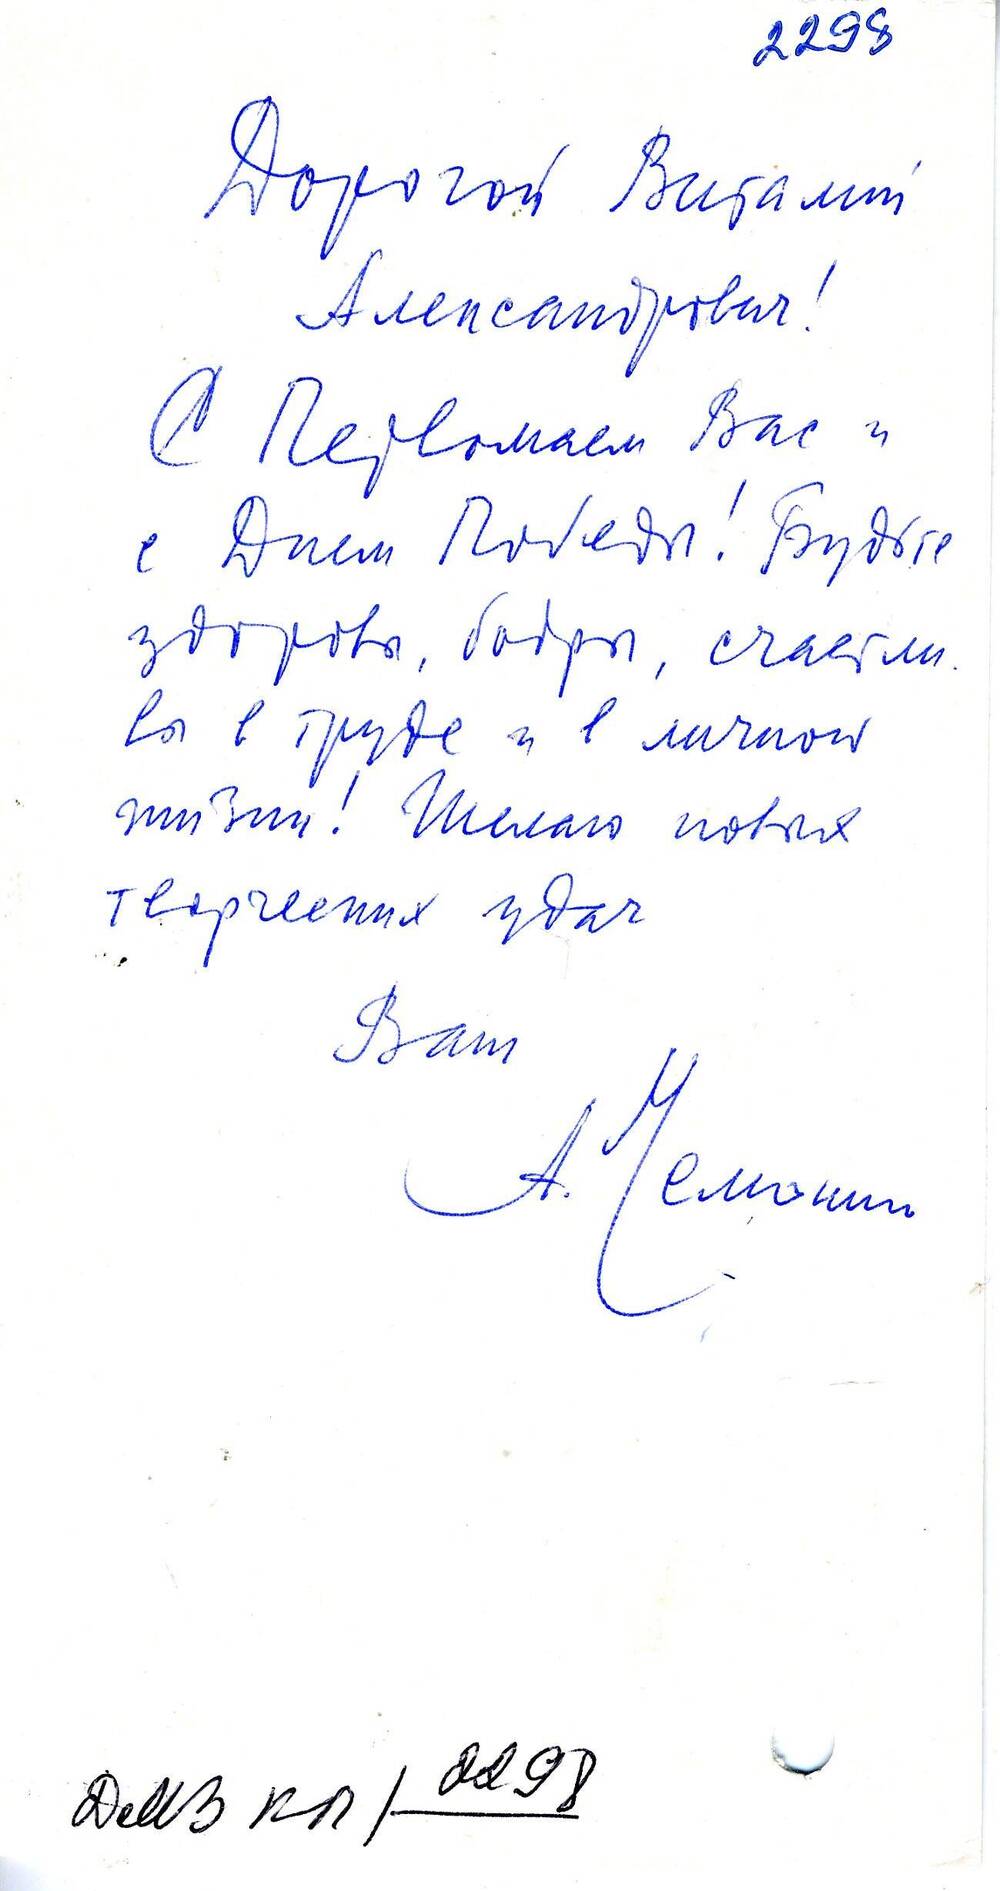 2298
Дорогой Виталий
Александрович!
С Первомаем Вас и
с Днем Победы! Будьте
здоровы, бодры, счастли-
вы в труде и в личной
жизни! Желаю новых
творческих удач
Ваш
А. Чемонин
ДМЗ КП / 2298